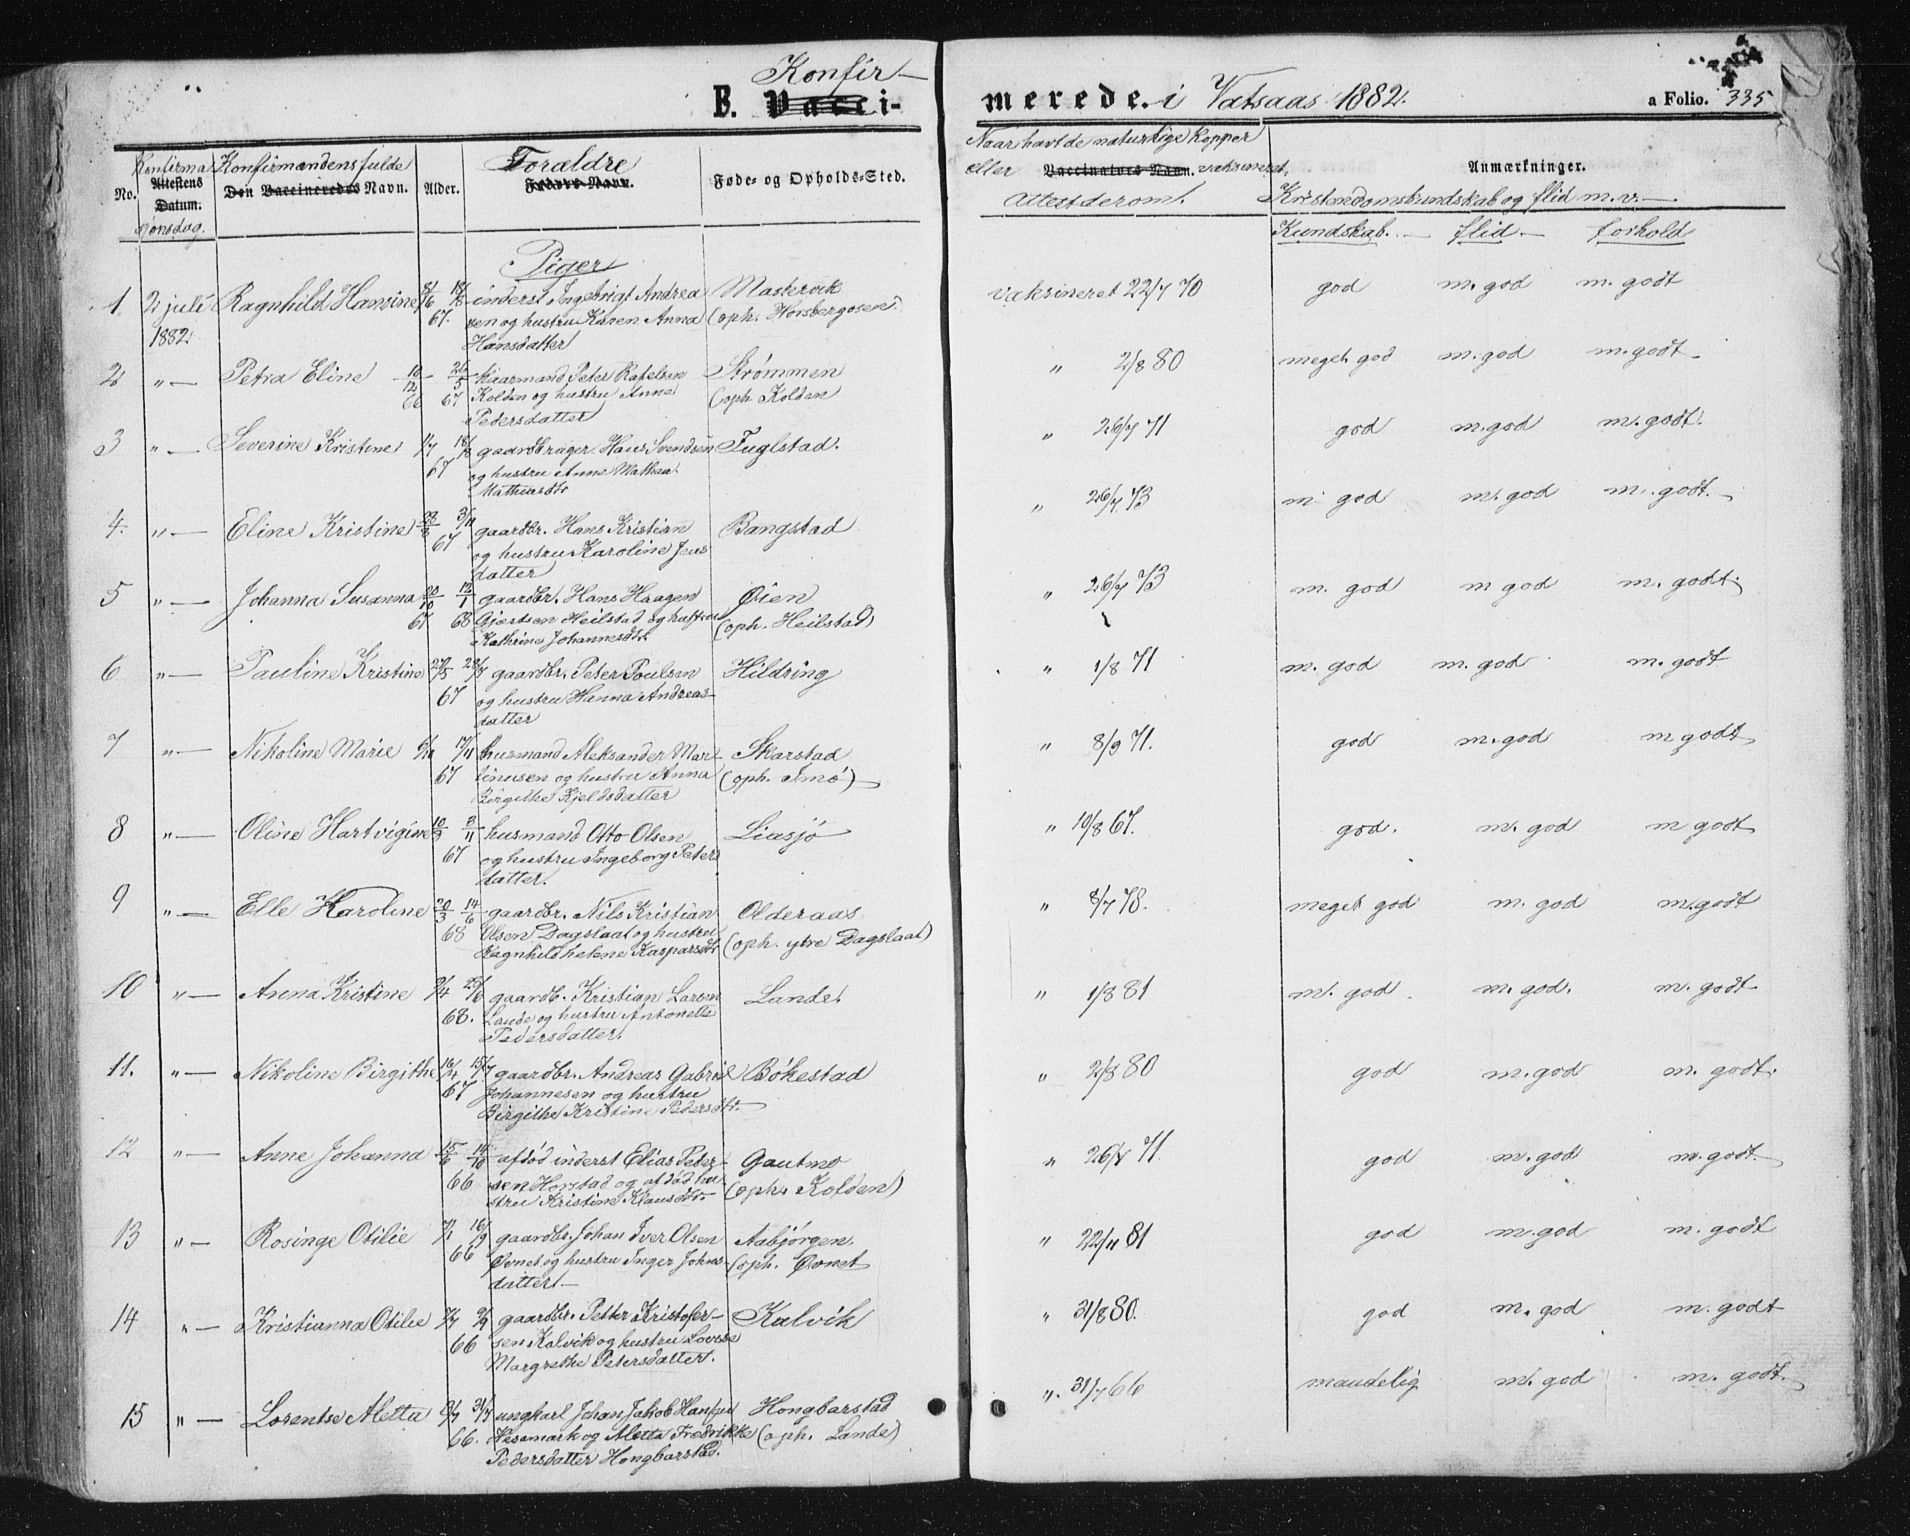 Konfir-
E. Vacci- merede. i Vatsaas 1882. a Folio. 335
Konfirma Konfirmandens fulde Forældre Naar havt de naturlige kopper
No. Attestens Datum. Den Vaccineredes Navn. Alder. Fædres Navn. Føde- og Opholds-Sted. eller Vaccinators Navn. vaksineret. Anmærkninger.
attest derom. Kristendomskundskab og flid m. v.
Kundskab. flid forhold
Piger
1 2 juli Ragnhild Hansine 67. inderst Ingebrigt Andrea Maskervik vaksineret 22/7 70 god m. god m. godt
1882. sen og hustru Karen Anna (oph. Horsbergosen)
Hansdatter
2 " — Petra Eline 10/12 66 26/5 67 kaarmand Peter Rafelsen Strømmen " 2/8 80 meget god m. god m. godt
Kolden og hustru Anne (oph Kolden
Pedersdatter
3 " — Severine Kristine 1/7 18/8 67 gaardbruger Hans Svendsen Fuglstad. " 26/7 71 god m. god m. godt.
og hustru Anne Mathea
Mathiasdtr
4. " — Eline Kristine 3/11 67 gaardbr. Hans Kristian Bangstad " 26/7 73 m. god m. god m. godt.
og hustru Karoline Jens
datter
5 " — Johanna Susanna 20/10 67 12/1 68 gaardbr. Hans Haagen Øien " 26/7 73 m. god m god m. godt.
Gjertsen Heilstad og hustru (oph. Heilstad)
Kathrine Johannesdtr.
6 " — Pauline Kristine 27/5 28/7 67 gaardbr. Peter Poulsen Hildring " 1/8 71 m. god m. god m. godt
og hustru Hanna Andreas-
datter
7 " — Nikoline Marie 17/11 67 husmand Aleksander Mar- Skarstad " 8/9 71. god m. god m godt
tinusen og hustru Anna (oph. Tmo)
Birgithe Kjeldsdatter
8 " — Oline Hartvigine 10/9 3/11 67 husmand Otto Olsen Liasjø " 10/8 67. god. m. god m godt
og hustru Ingeborg Peters
datter.
9 " — Elle Karoline 20/3 14/6 68 gaardbr. Nils Kristian Olderaas " 8/7 78. meget god m. god m. godt
Olsen Dagslaat og hustru (oph. ytre Dagslaat)
Ragnhild helene Kaspersdtr
10 " — Anna Kristine 68. gaardb. Kristian Larsen Lande. " 1/8 81 m. god m. god. m. godt
Lande og hustru Antonette
Pedersdatter.
11. " — Nikoline Birgithe 16/4 15/7 67 gaardbr. Andreas Gabriel Bökestad " 2/8 80 god m. god m. godt.
Johannesen og hustru
Birgithe Kristine Pedersdtr.
12 " — Anne Johanna 15/6 14/10 66 afdød inderst Elias Peter- Gautmo " 26/7 71. god m. god m. godt.
sen Horstad og afdød hu- (oph. Kolden)
stru Kristine Klausdtr.
13 " — Rosinge Otilie 16/9 66 gaardbr. Johan Iver Olsen Aabjørgen. " 22/11 81 god m. god m. godt
Øvnet og hustru Inger Johns- (oph. Øvnet
datter.
14 " — Kristianna Otilie 66 gaardbr. Petter Kristofer- Kalvik " 31/8 80. god m. god m. godt
sen Kalvik og hustru Lovise
Margrethe Petersdatter.
15 " — Lorentse Aletta 66. ungkarl Johan Jakob Hansen Hongbarstad " 31/7 66 maadelig m. god m. godt.
Nesemark og Aletta Fredrikke (oph. Lande)
Pedersdatter Hongbarstad.